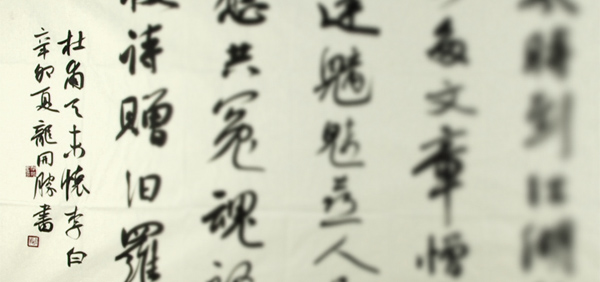 時到江湖
多文章憎
達魑魅喜人
應共冤魂
投詩贈汨羅
杜甫天末懷李白
辛卯夏龍開勝書